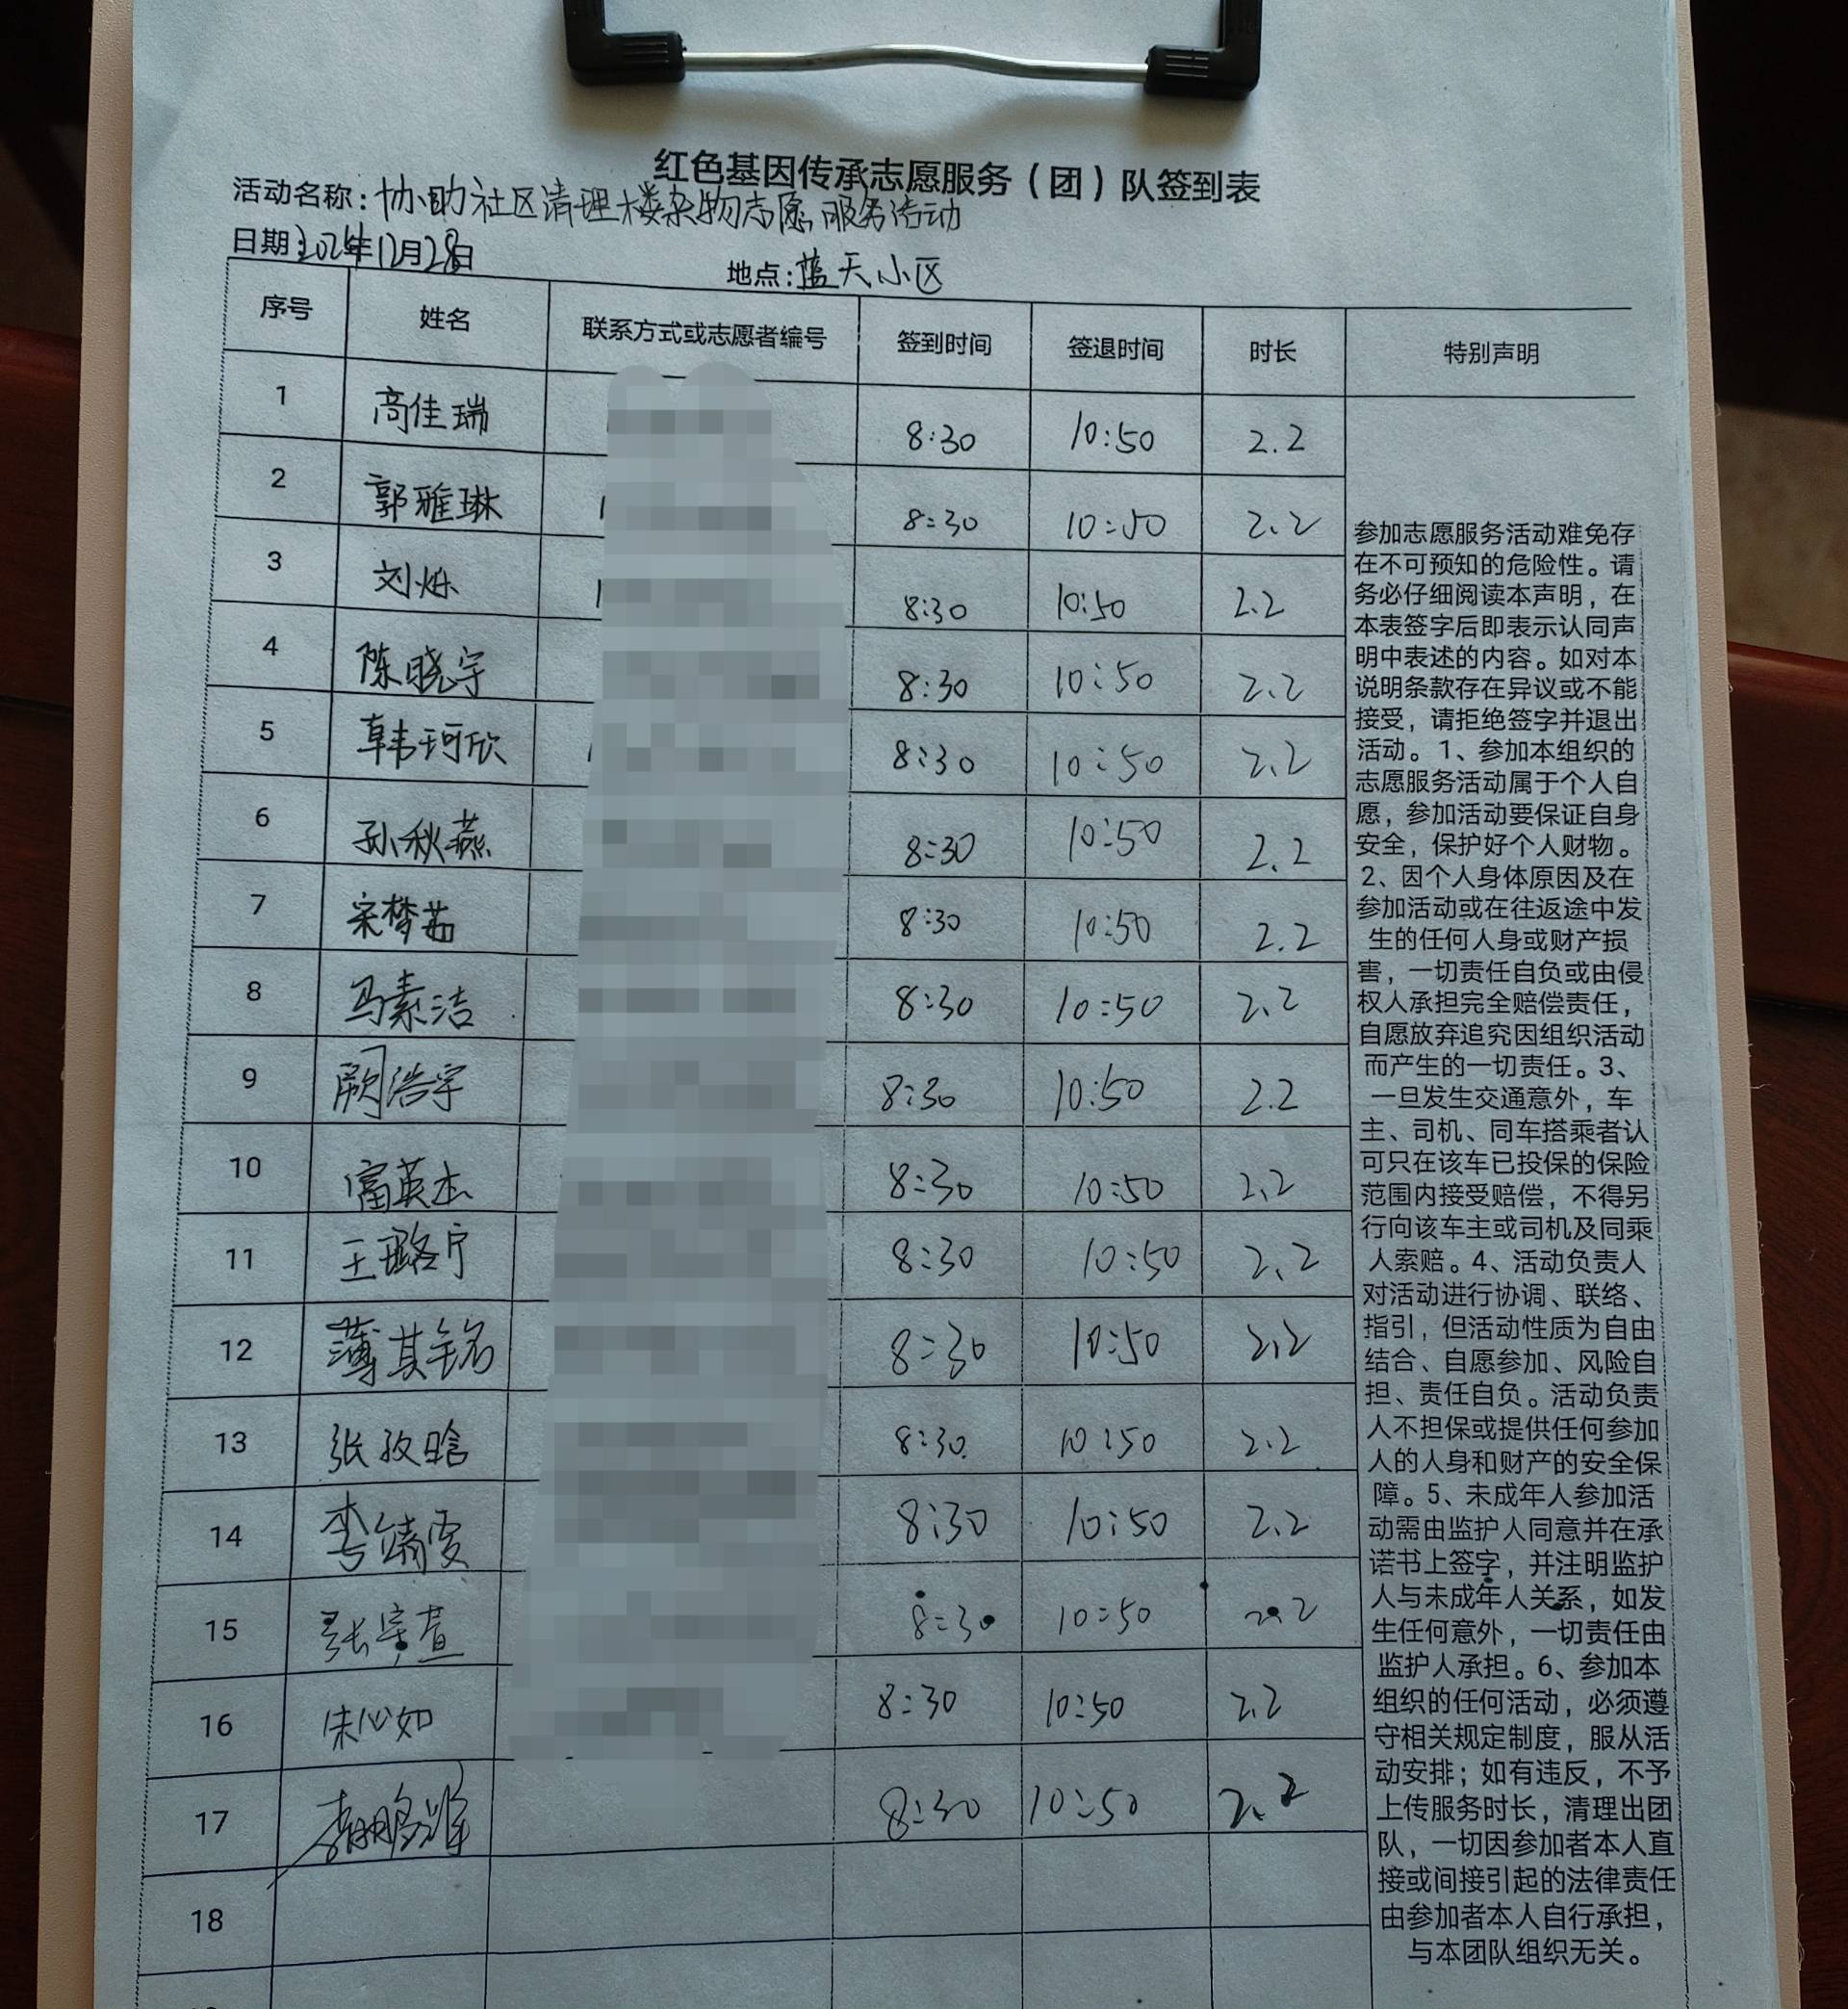 红色基因传承志愿服务（团）队签到表
活动名称：协助社区清理楼杂物志愿服务活动
日期：2024年12月28日
地点：蓝天小区
序号 姓名 联系方式或志愿者编号 签到时间 签退时间 时长 特别声明
1 高佳瑞 8:30 10:50 2.2
2 郭雅琳 8:30 10:50 2.2
3 刘烁 8:30 10:50 2.2
4 陈晓宇 8:30 10:50 2.2
5 韩珂欣 8:30 10:50 2.2
6 孙秋燕 8:30 10:50 2.2
7 宋梦茹 8:30 10:50 2.2
8 马素洁 8:30 10:50 2.2
9 阚浩宇 8:30 10:50 2.2
10 富英杰 8:30 10:50 2.2
11 王璐宁 8:30 10:50 2.2
12 薄其铭 8:30 10:50 2.2
13 张孜晗 8:30 10:50 2.2
14 李靖雯 8:30 10:50 2.2
15 张宇萱 8:30 10:50 2.2
16 宋心如 8:30 10:50 2.2
17 8:30 10:50 2.2
18
参加志愿服务活动难免存
在不可预知的危险性。请
务必仔细阅读本声明，在
本表签字后即表示认同声
明中表述的内容。如对本
说明条款存在异议或不能
接受，请拒绝签字并退出
活动。1、参加本组织的
志愿服务活动属于个人自
愿，参加活动要保证自身
安全，保护好个人财物。
2、因个人身体原因及在
参加活动或在往返途中发
生的任何人身或财产损
害，一切责任自负或由侵
权人承担完全赔偿责任，
自愿放弃追究因组织活动
而产生的一切责任。3、
一旦发生交通意外，车
主、司机、同车搭乘者认
可只在该车已投保的保险
范围内接受赔偿，不得另
行向该车主或司机及同乘
人索赔。4、活动负责人
对活动进行协调、联络、
指引，但活动性质为自由
结合、自愿参加、风险自
担、责任自负。活动负责
人不担保或提供任何参加
人的人身和财产的安全保
障。5、未成年人参加活
动需由监护人同意并在承
诺书上签字，并注明监护
人与未成年人关系，如发
生任何意外，一切责任由
监护人承担。6、参加本
组织的任何活动，必须遵
守相关规定制度，服从活
动安排；如有违反，不予
上传服务时长，清理出团
队，一切因参加者本人直
接或间接引起的法律责任
由参加者本人自行承担，
与本团队组织无关。